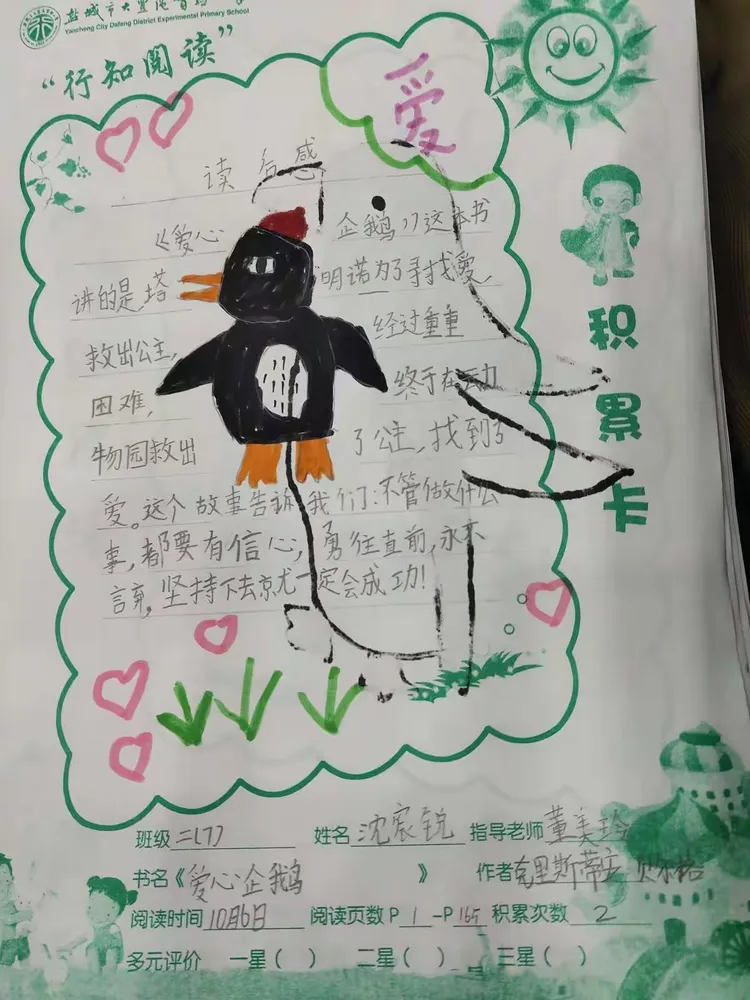 盐城市大丰区实验小学
Yancheng City Dafeng District Experimental Primary School
“行知阅读”
爱
读后感
《爱心企鹅》这本书
讲的是塔明诺为了寻找爱,
救出公主,经过重重
困难,终于在动
物园救出了公主,找到了
爱。这个故事告诉我们:不管做什么
事,都要有信心,勇往直前,永不
言弃,坚持下去就一定会成功!
积累卡
班级 二(7) 姓名 沈宸锐 指导老师 董美玲
书名《爱心企鹅》 作者 克里斯蒂安 贝尔格
阅读时间 10月6日 阅读页数P 1 -P 165 积累次数 2
多元评价 一星( ) 二星( ) 三星( )